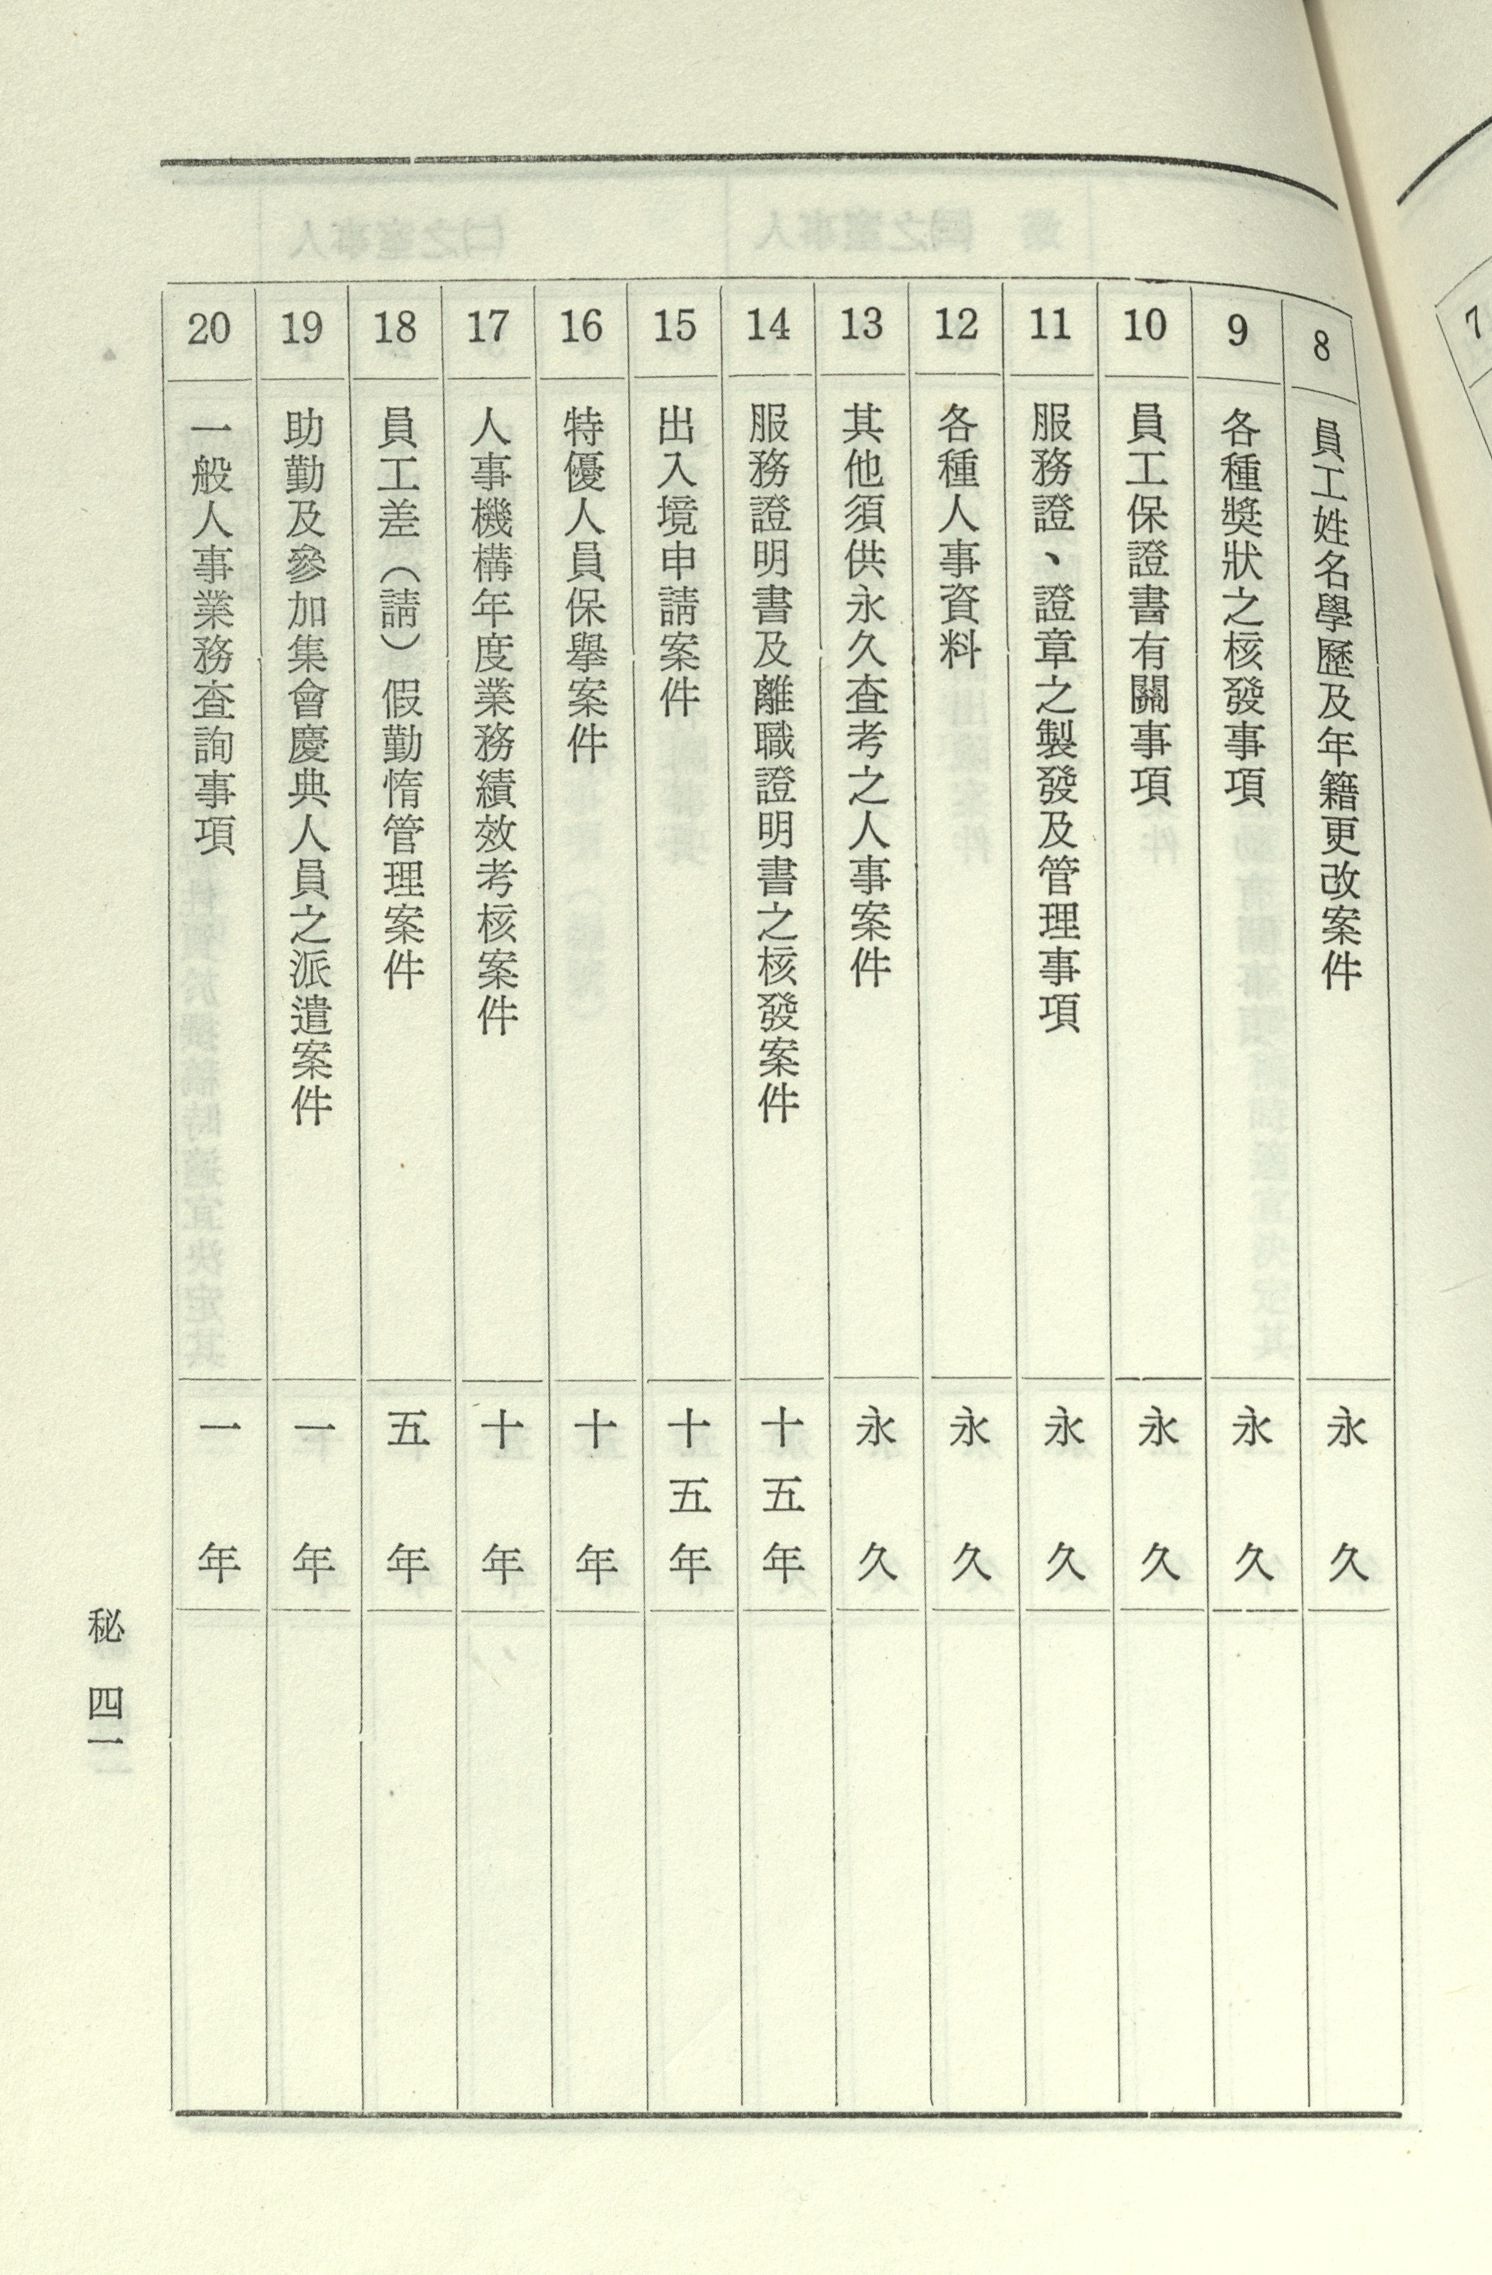 7
8 員工姓名學歷及年籍更改案件 永久
9 各種獎狀之核發事項 永久
10 員工保證書有關事項 永久
11 服務證、證章之製發及管理事項 永久
12 各種人事資料 永久
13 其他須供永久查考之人事案件 永久
14 服務證明書及離職證明書之核發案件 十五年
15 出入境申請案件 十五年
16 特優人員保舉案件 十年
17 人事機構年度業務績效考核案件 十年
18 員工差（請）假勤惰管理案件 五年
19 助勤及參加集會慶典人員之派遣案件 一年
20 一般人事業務查詢事項 一年
秘 四一